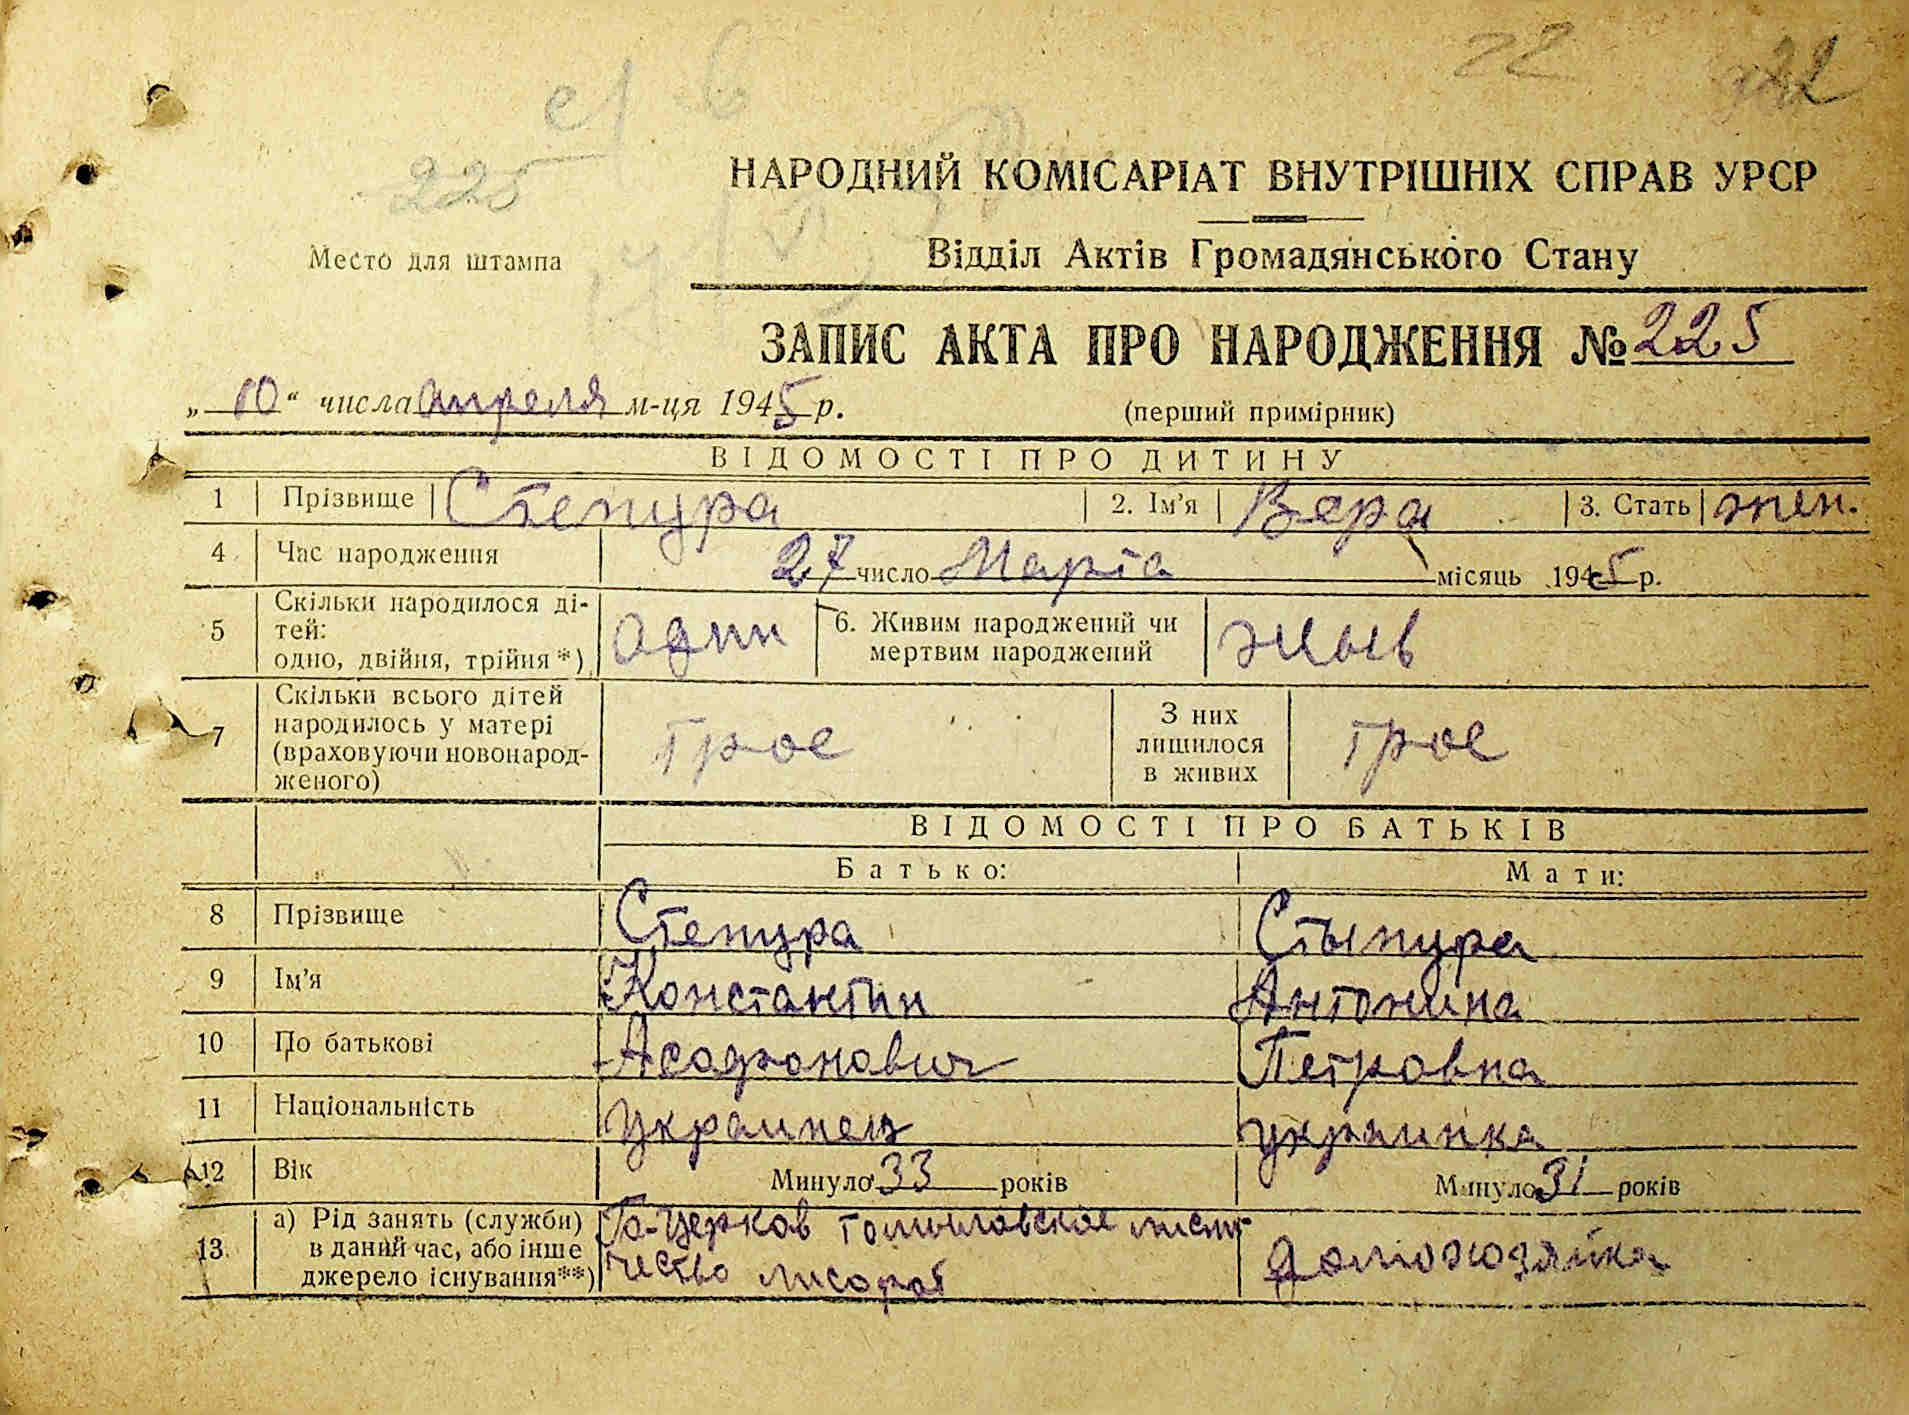 22
225
Место для штампа
НАРОДНИЙ КОМІСАРІАТ ВНУТРІШНІХ СПРАВ УРСР
Відділ Актів Громадянського Стану
ЗАПИС АКТА ПРО НАРОДЖЕННЯ № 225
„10“ числа апреля м-ця 1945 р. (перший примірник)
ВІДОМОСТІ ПРО ДИТИНУ
1 Прізвище Степура 2. Ім'я Вера 3. Стать жен.
4 Час народження 27 число Марта місяць 1945 р.
5 Скільки народилося ді-
тей:
одно, двійня, трійня *) один 6. Живим народжений чи
мертвим народжений жыв
7 Скільки всього дітей
народилось у матері
(враховуючи новонарод-
женого) трое З них
лишилося
в живих трое
ВІДОМОСТІ ПРО БАТЬКІВ
Батько: Мати:
8 Прізвище Степура Стыпура
9 Ім'я Константин Антонина
10 По батькові Петровна
11 Національність украинец украинка
12 Вік Минуло 33 років Минуло 31 років
13 а) Рід занять (служби)
в даний час, або інше
джерело існування**) домохозяйка